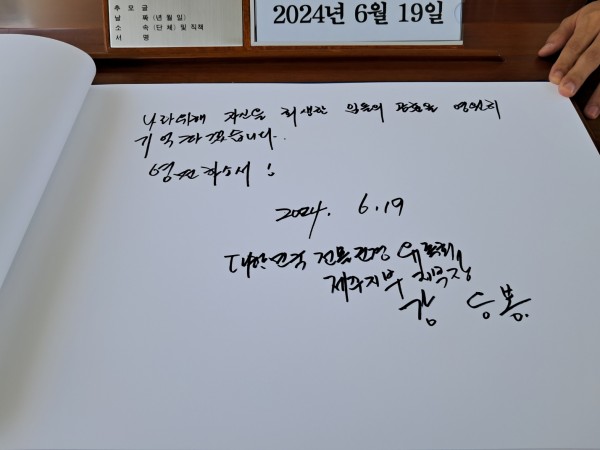 추 모 글
날 짜 (년 월 일)
소 속 (단 체) 및 직책
서 명
2024년 6월 19일
나라위해 자신을 희생한 임들의 영원히
기억하겠습니다.
영면하소서!
2024. 6.19
대한민국 전몰군경 유족회
제주지부
김